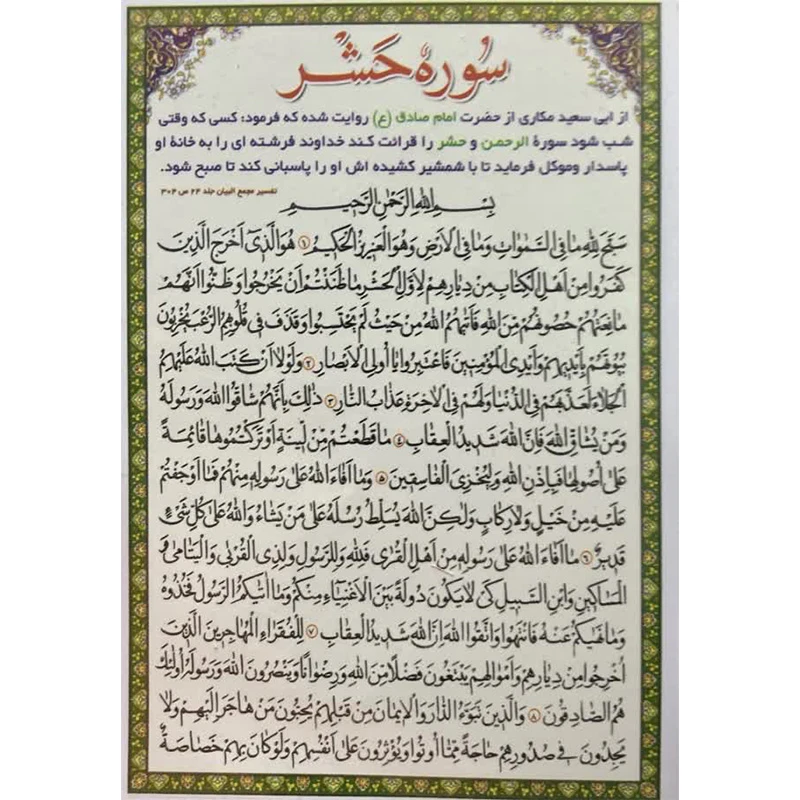 سوره حشر
از ابی سعید مکاری از حضرت امام صادق (ع) روایت شده که فرمود: کسی که وقتی
شب شود سورهٔ الرحمن و حشر را قرائت کند خداوند فرشته ای را به خانهٔ او
پاسدار وموکل فرماید تا با شمشیر کشیده اش او را پاسبانی کند تا صبح شود.
تفسیر مجمع البیان جلد ۲۴ ص ۳۰۴
بِسْمِ اللهِ الرَّحْمٰنِ الرَّحیمِ
سَبَّحَ لِلّٰهِ مَا فِی السَّمٰوَاتِ وَمَا فِی الْاَرْضِ وَهُوَ الْعَزیزُ الْحَکیمُ ۱ هُوَ الَّذی اَخْرَجَ الَّذینَ
کَفَرُوا مِنْ اَهْلِ الْکِتَابِ مِنْ دِیَارِهِمْ لِاَوَّلِ الْحَشْرِ مَا ظَنَنْتُمْ اَنْ یَخْرُجُوا وَظَنُّوا اَنَّهُمْ
مَانِعَتُهُمْ حُصُونُهُمْ مِنَ اللهِ فَاَتٰیهُمُ اللهُ مِنْ حَیْثُ لَمْ یَحْتَسِبُوا وَقَذَفَ فی قُلُوبِهِمُ الرُّعْبَ یُخْرِبُونَ
بُیُوتَهُمْ بِاَیْدیهِمْ وَاَیْدِی الْمُؤْمِنینَ فَاعْتَبِرُوا یَا اُولِی الْاَبْصَارِ ۲ وَلَوْلَا اَنْ کَتَبَ اللهُ عَلَیْهِمُ
الْجَلَاءَ لَعَذَّبَهُمْ فِی الدُّنْیَا وَلَهُمْ فِی الْاٰخِرَةِ عَذَابُ النَّارِ ۳ ذٰلِکَ بِاَنَّهُمْ شَاقُّوا اللهَ وَرَسُولَهُ
وَمَنْ یُشَاقِّ اللهَ فَاِنَّ اللهَ شَدیدُ الْعِقَابِ ۴ مَا قَطَعْتُمْ مِنْ لینَةٍ اَوْ تَرَکْتُمُوهَا قَائِمَةً
عَلٰی اُصُولِهَا فَبِاِذْنِ اللهِ وَلِیُخْزِیَ الْفَاسِقینَ ۵ وَمَا اَفَاءَ اللهُ عَلٰی رَسُولِهِ مِنْهُمْ فَمَا اَوْجَفْتُمْ
عَلَیْهِ مِنْ خَیْلٍ وَلَا رِکَابٍ وَلٰکِنَّ اللهَ یُسَلِّطُ رُسُلَهُ عَلٰی مَنْ یَشَاءُ وَاللهُ عَلٰی کُلِّ شَیْءٍ
قَدیرٌ ۶ مَا اَفَاءَ اللهُ عَلٰی رَسُولِهِ مِنْ اَهْلِ الْقُرٰی فَلِلّٰهِ وَلِلرَّسُولِ وَلِذِی الْقُرْبٰی وَالْیَتَامٰی وَ
الْمَسَاکینِ وَابْنِ السَّبیلِ کَیْ لَا یَکُونَ دُولَةً بَیْنَ الْاَغْنِیَاءِ مِنْکُمْ وَمَا اٰتٰیکُمُ الرَّسُولُ فَخُذُوهُ
وَمَا نَهٰیکُمْ عَنْهُ فَانْتَهُوا وَاتَّقُوا اللهَ اِنَّ اللهَ شَدیدُ الْعِقَابِ ۷ لِلْفُقَرَاءِ الْمُهَاجِرینَ الَّذینَ
اُخْرِجُوا مِنْ دِیَارِهِمْ وَاَمْوَالِهِمْ یَبْتَغُونَ فَضْلًا مِنَ اللهِ وَرِضْوَانًا وَیَنْصُرُونَ اللهَ وَرَسُولَهُ اُولٰئِکَ
هُمُ الصَّادِقُونَ ۸ وَالَّذینَ تَبَوَّءُ الدَّارَ وَالْایمَانَ مِنْ قَبْلِهِمْ یُحِبُّونَ مَنْ هَاجَرَ اِلَیْهِمْ وَلَا
یَجِدُونَ فی صُدُورِهِمْ حَاجَةً مِمَّا اُوتُوا وَیُؤْثِرُونَ عَلٰی اَنْفُسِهِمْ وَلَوْ کَانَ بِهِمْ خَصَاصَةٌ